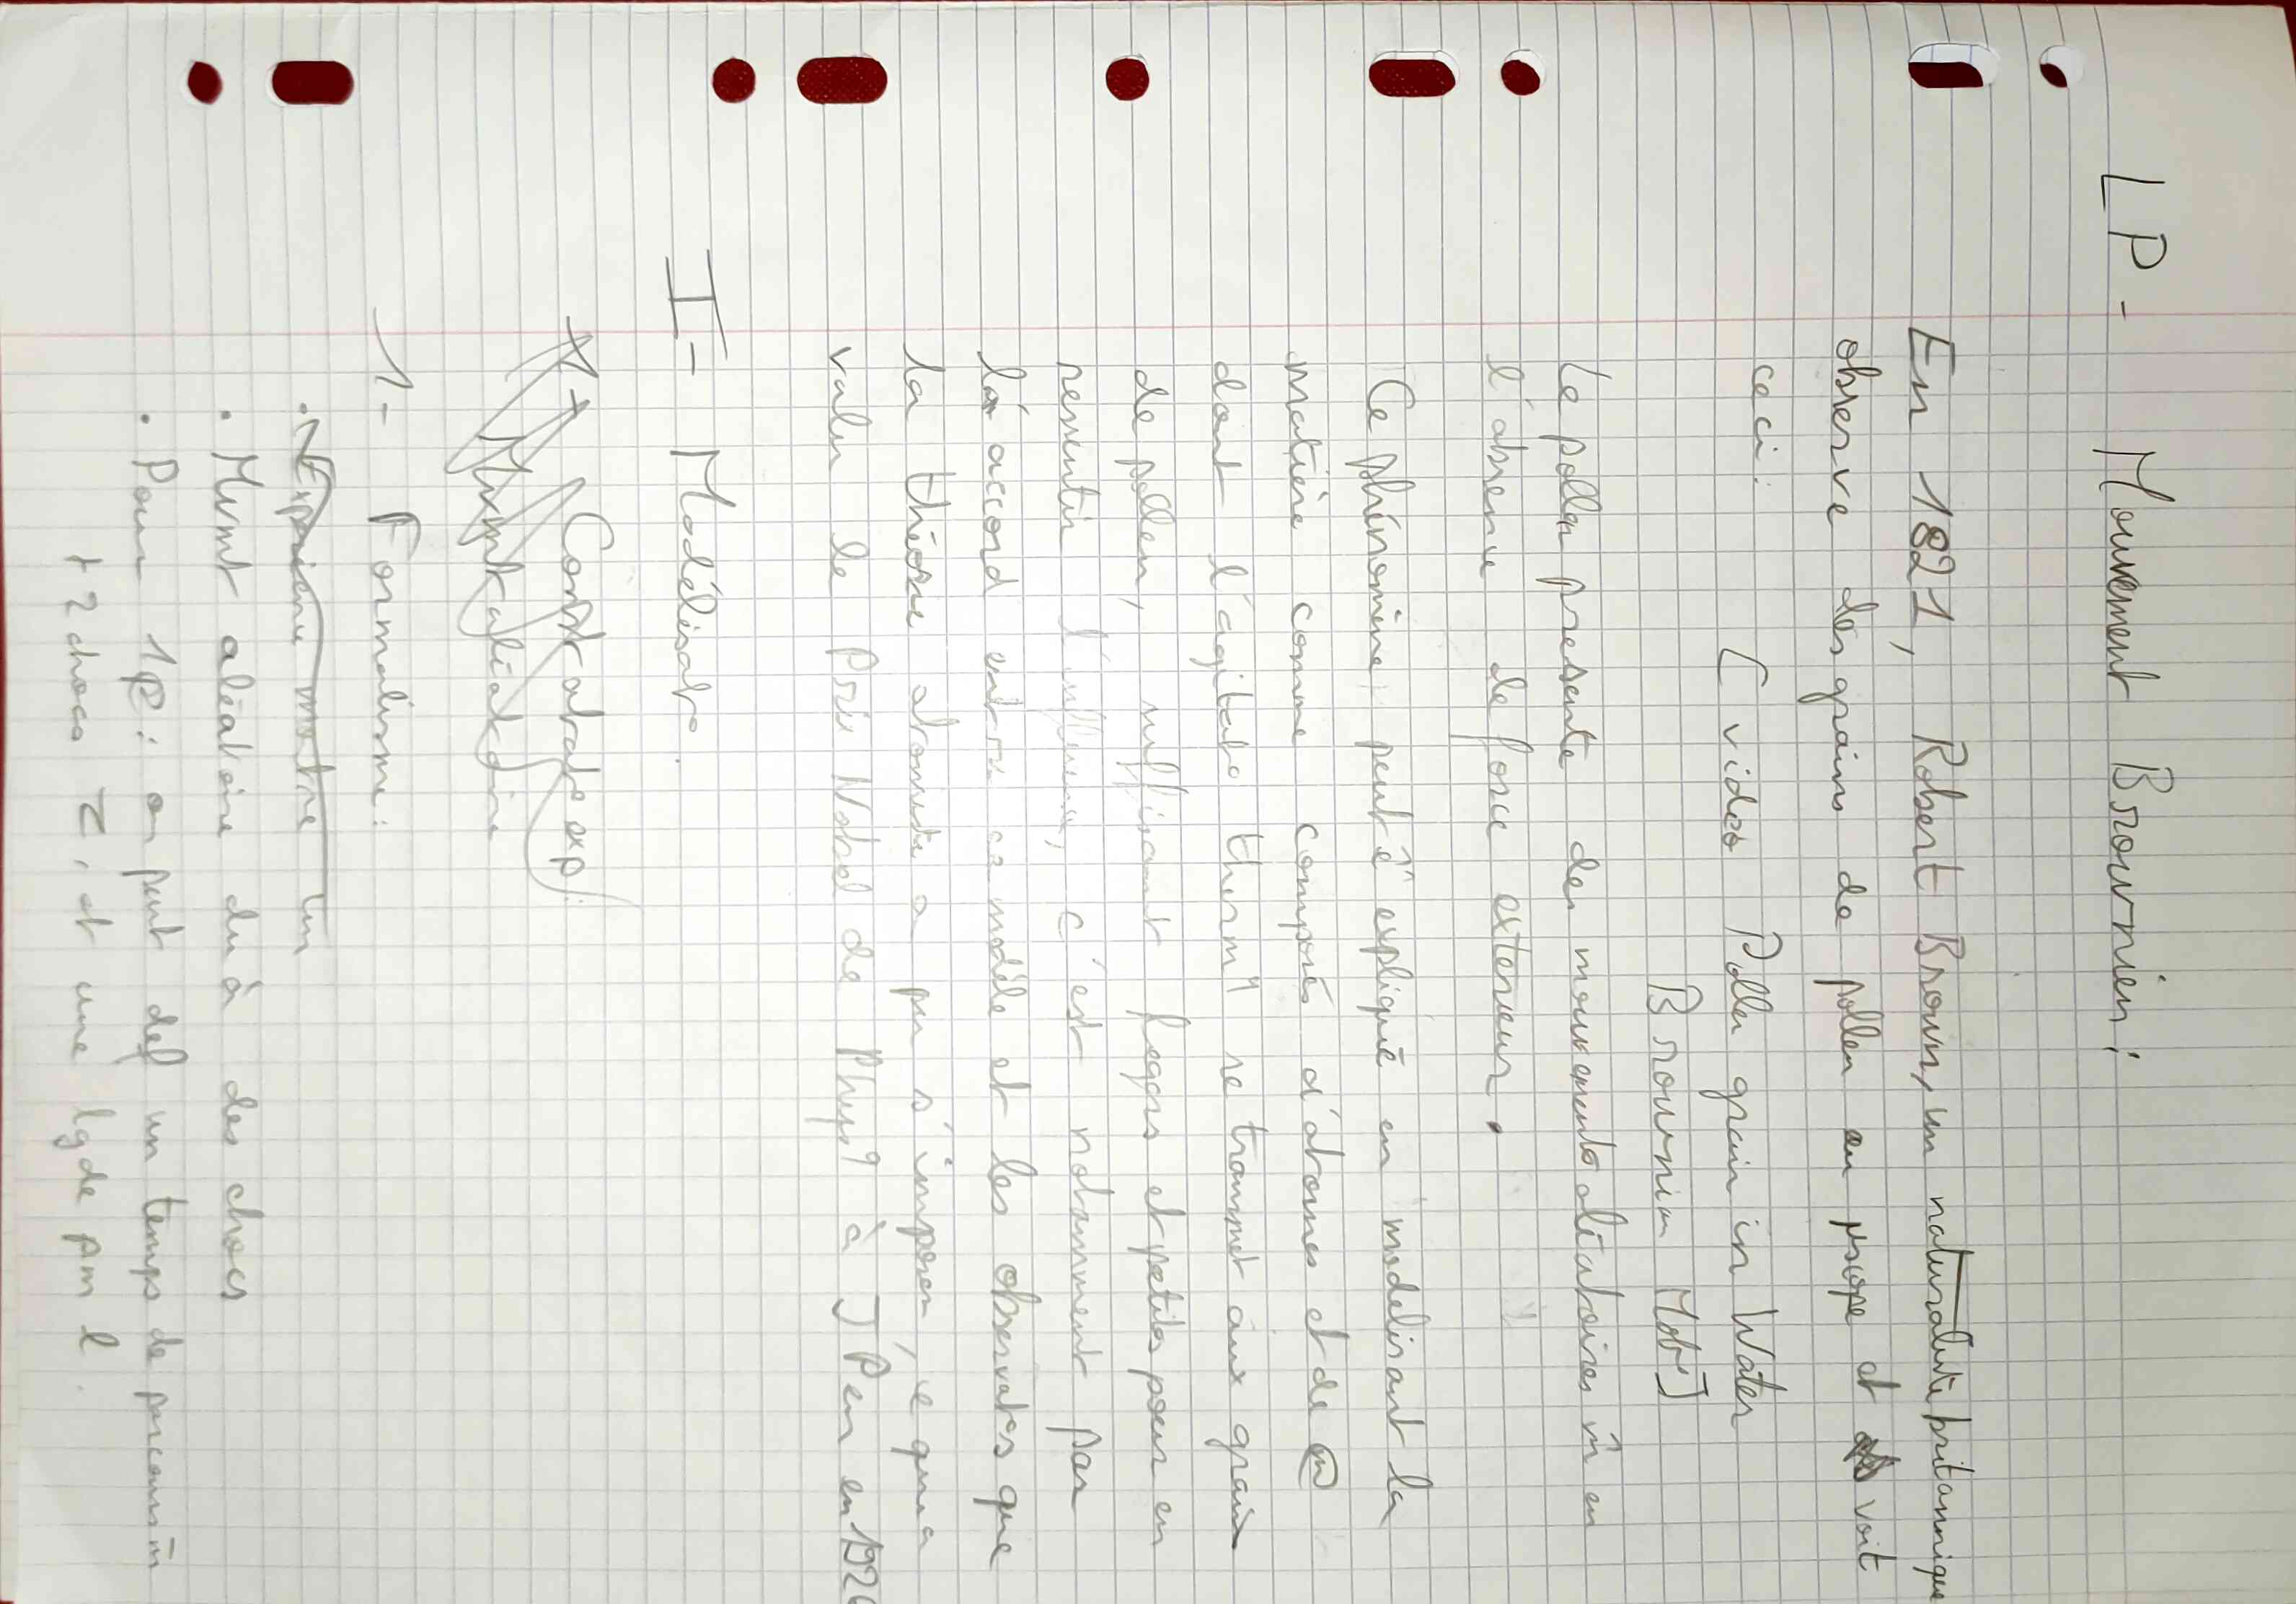 LP - Mouvement Brownien :
En 1821, Robert Brown, un naturaliste britannique
observe des grains de pollen au µscope et voit
ceci :
[ video Pollen grain in Water
Brownian Motº]
Le pollen presente des mouvements aléatoires m̂ en
l'absence de force exterieur.
Ce phénomène peut ê expliqué en modelisant la
matière comme composés d'atomes et de
dont l'agitatº thermq se transmet aux grain
de pollen, suffisant legers et petits pour en
ressentir l'influence, c'est notamment par
l'accord entre ce modèle et les observatºs que
la théorie atomiste a pu s'imposer, ce qui a
valu le Prix Nobel de Physq à JPer en 192
I - Modélisatº.
1 - Constatatº exp :
Mvmt aléatoire
1 - Formalisme :
. Expérience montre un
. Mvmt aléatoire du à des chocs
. Pour 1 : on peut def un temps de parcours m̄
+ 2 chocs τ, et une lg de pm l.